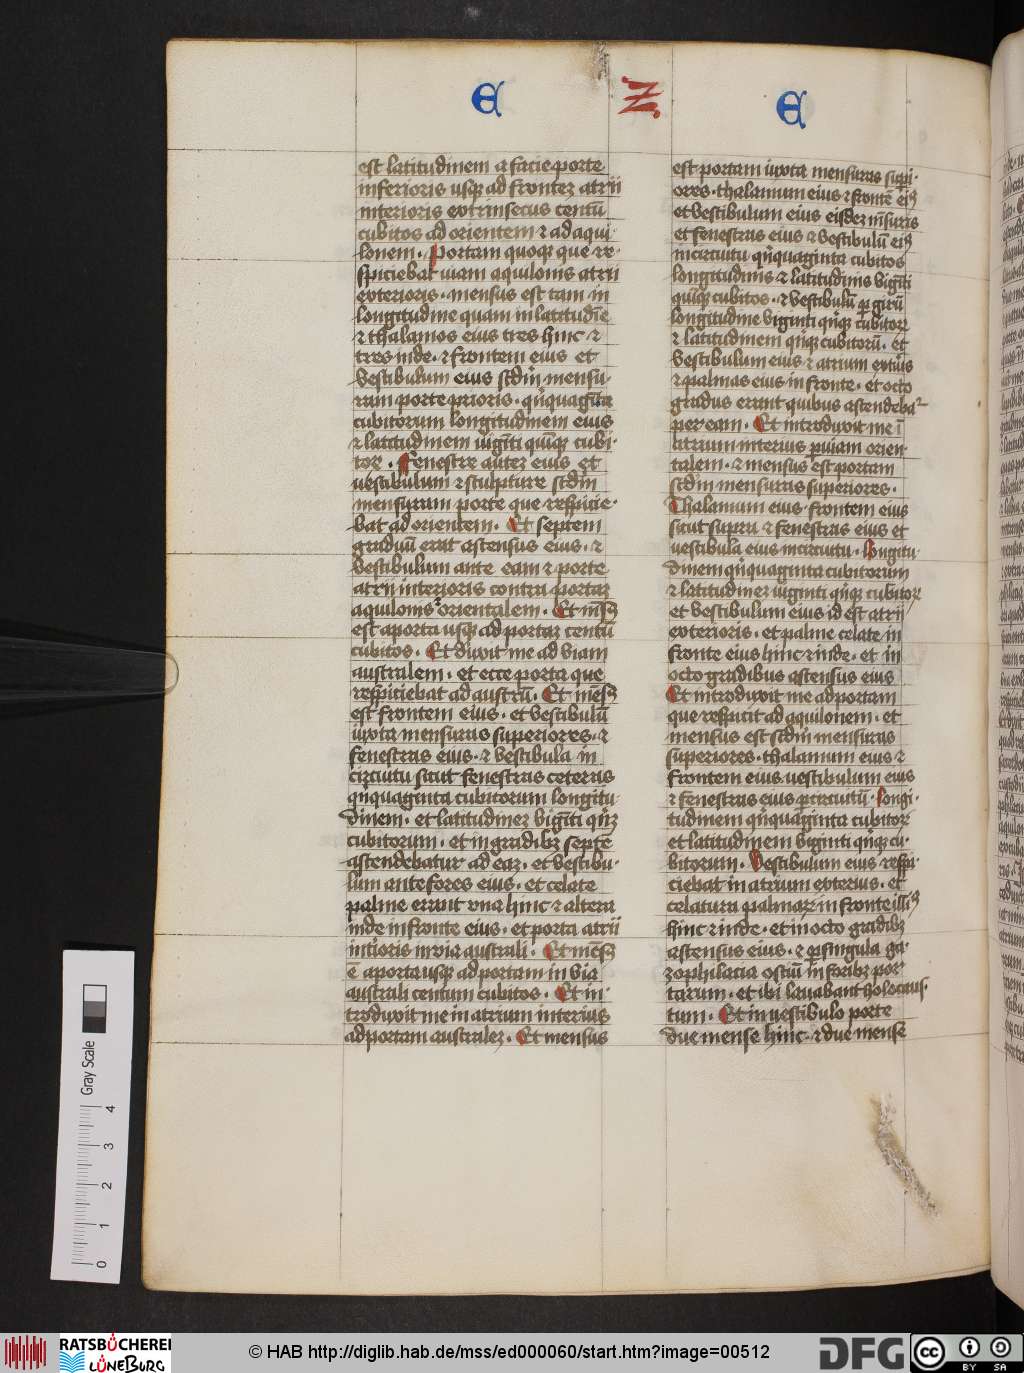 E Z E
est latitudinem a facie porte
inferioris usq̢ ad frontez atrii
interioris extrinsecus centū
cubitos ad orientem ⁊ ad aqui
lonem . Portam quoq̢ que re
spiciebat viam aquilonis atrii
exterioris · mensus est tam in
longitudine quam in latitudīe
⁊ thalamos eius tres hinc ⁊
tres inde · ⁊ frontem eius et
vestibulum eius scd̄m mensu
ram porte prioris · qn̄quagīta
cubitorum longitudinem eius
⁊ latitudinem vigīti quīq̢ cubi
torꝝ . Fenestre autez eius et
vestibulum ⁊ sculpture scd̄m
mensuram porte que respicie
bat ad orientem · Et septem
graduū erat astensus eius · ⁊
vestibulum ante eam ⁊ porte
atrii interioris contra portaz
aquilonis ⁊ orientalem · Et mēsꝰ
est a porta usq̢ ad portaz centū
cubitos · Et duxit me ad viam
australem · et ecce porta que
respiciebat ad austrū · Et mēsꝰ
est frontem eius · et vestibulū
iuxta mensuras superiores · ⁊
fenestras eius · ⁊ vestibula in
circuitu sicut fenestras ceteras
qn̄quaginta cubitorum longitu
dinem · et latitudinez vigīti qn̄qꝫ
cubitorum · et in gradibꝫ septē
astendebatur ad eaz · et vestibu
lum ante fores eius · et celate
palme erant una hinc ⁊ altera
inde in fronte eius · et porta atrii
int̄ioris in via australi · Et mēsꝰ
ē a porta usq̢ ad portam in via
australi centum cubitos · Et in
troduxit me in atrium interius
ad portam australez · Et mensus
est portam iuxta mensuras supi
ores · thalamum eius ⁊ frontē eiꝰ
et vestibulum eius eisdez mēsuris
et fenestras eius ⁊ vestibulū eiꝰ
in circuitu qn̄quaginta cubitos
longitudinis ⁊ latitudinis vigīti
quīq̢ cubitos · ⁊ vestibulū ꝑ girū
longitudine viginti qn̄q̢ cubitorꝝ
⁊ latitudinem qn̄q̢ cubitorū · et
vestibulum eius ⁊ atrium ext̄ius
⁊ palmas eius in fronte · et octo
gradus erant quibus astendebaᵗ
per eam · Et introduxit me ī
atrium interius ꝑ viam orien
talem · ⁊ mensus est portam
scd̄m mensuras superiores ·
Thalamum eius · frontem eius
sicut supra ⁊ fenestras eius et
vestibula eius in circuitu · longitu
dinem qn̄quaginta cubitorum
⁊ latitudinez viginti qn̄q̢ cubitorꝝ
et vestibulum eius id est atrii
exterioris · et palme celate in
fronte eius hinc ⁊ inde · et in
octo gradibus astensus eius
Et introduxit me ad portam
que respicit ad aquilonem · et
mensus est scd̄m mensuras
superiores · thalamum eius ⁊
frontem eius vestibulum eius
⁊ fenestras eius ꝑ circuitū · longi
tudinem qn̄quaginta cubitorꝝ
et latitudinem viginti qn̄q̢ cu
bitorum · Vestibulum eius respi
ciebat in atrium exterius · et
celatura palmarꝝ in fronte illiꝰ
hinc ⁊ inde · et in octo gradibꝫ
astensus eius · ⁊ ꝑ singula ga
zophilacia ostiū in foribꝫ por
tarum · et ibi lavabant holocaus
tum · Et in vestibulo porte
due mense hinc · ⁊ due mense
Gray Scale
0 1 2 3 4
RATSBÜCHEREI
LÜNEBURG
© HAB http://diglib.hab.de/mss/ed000060/start.htm?image=00512
DFG
cc BY SA